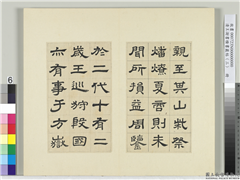 親至其山柴祭
燔燎夏商則未
聞所損益周鑒
於二代十有二
歲王巡狩殷國
亦有事于方嶽
6